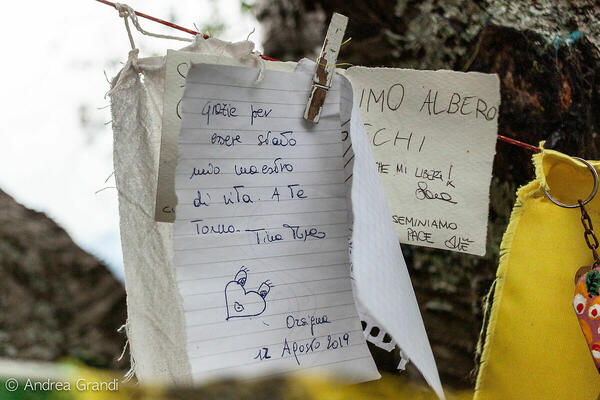 Grazie per
essere stato
mio maestro
di vita. A te
Torno.
Orsigna
12 Agosto 2019
IMO ALBERO
CHI
HE MI LIBERI!
SEMINIAMO
PACE
© Andrea Grandi